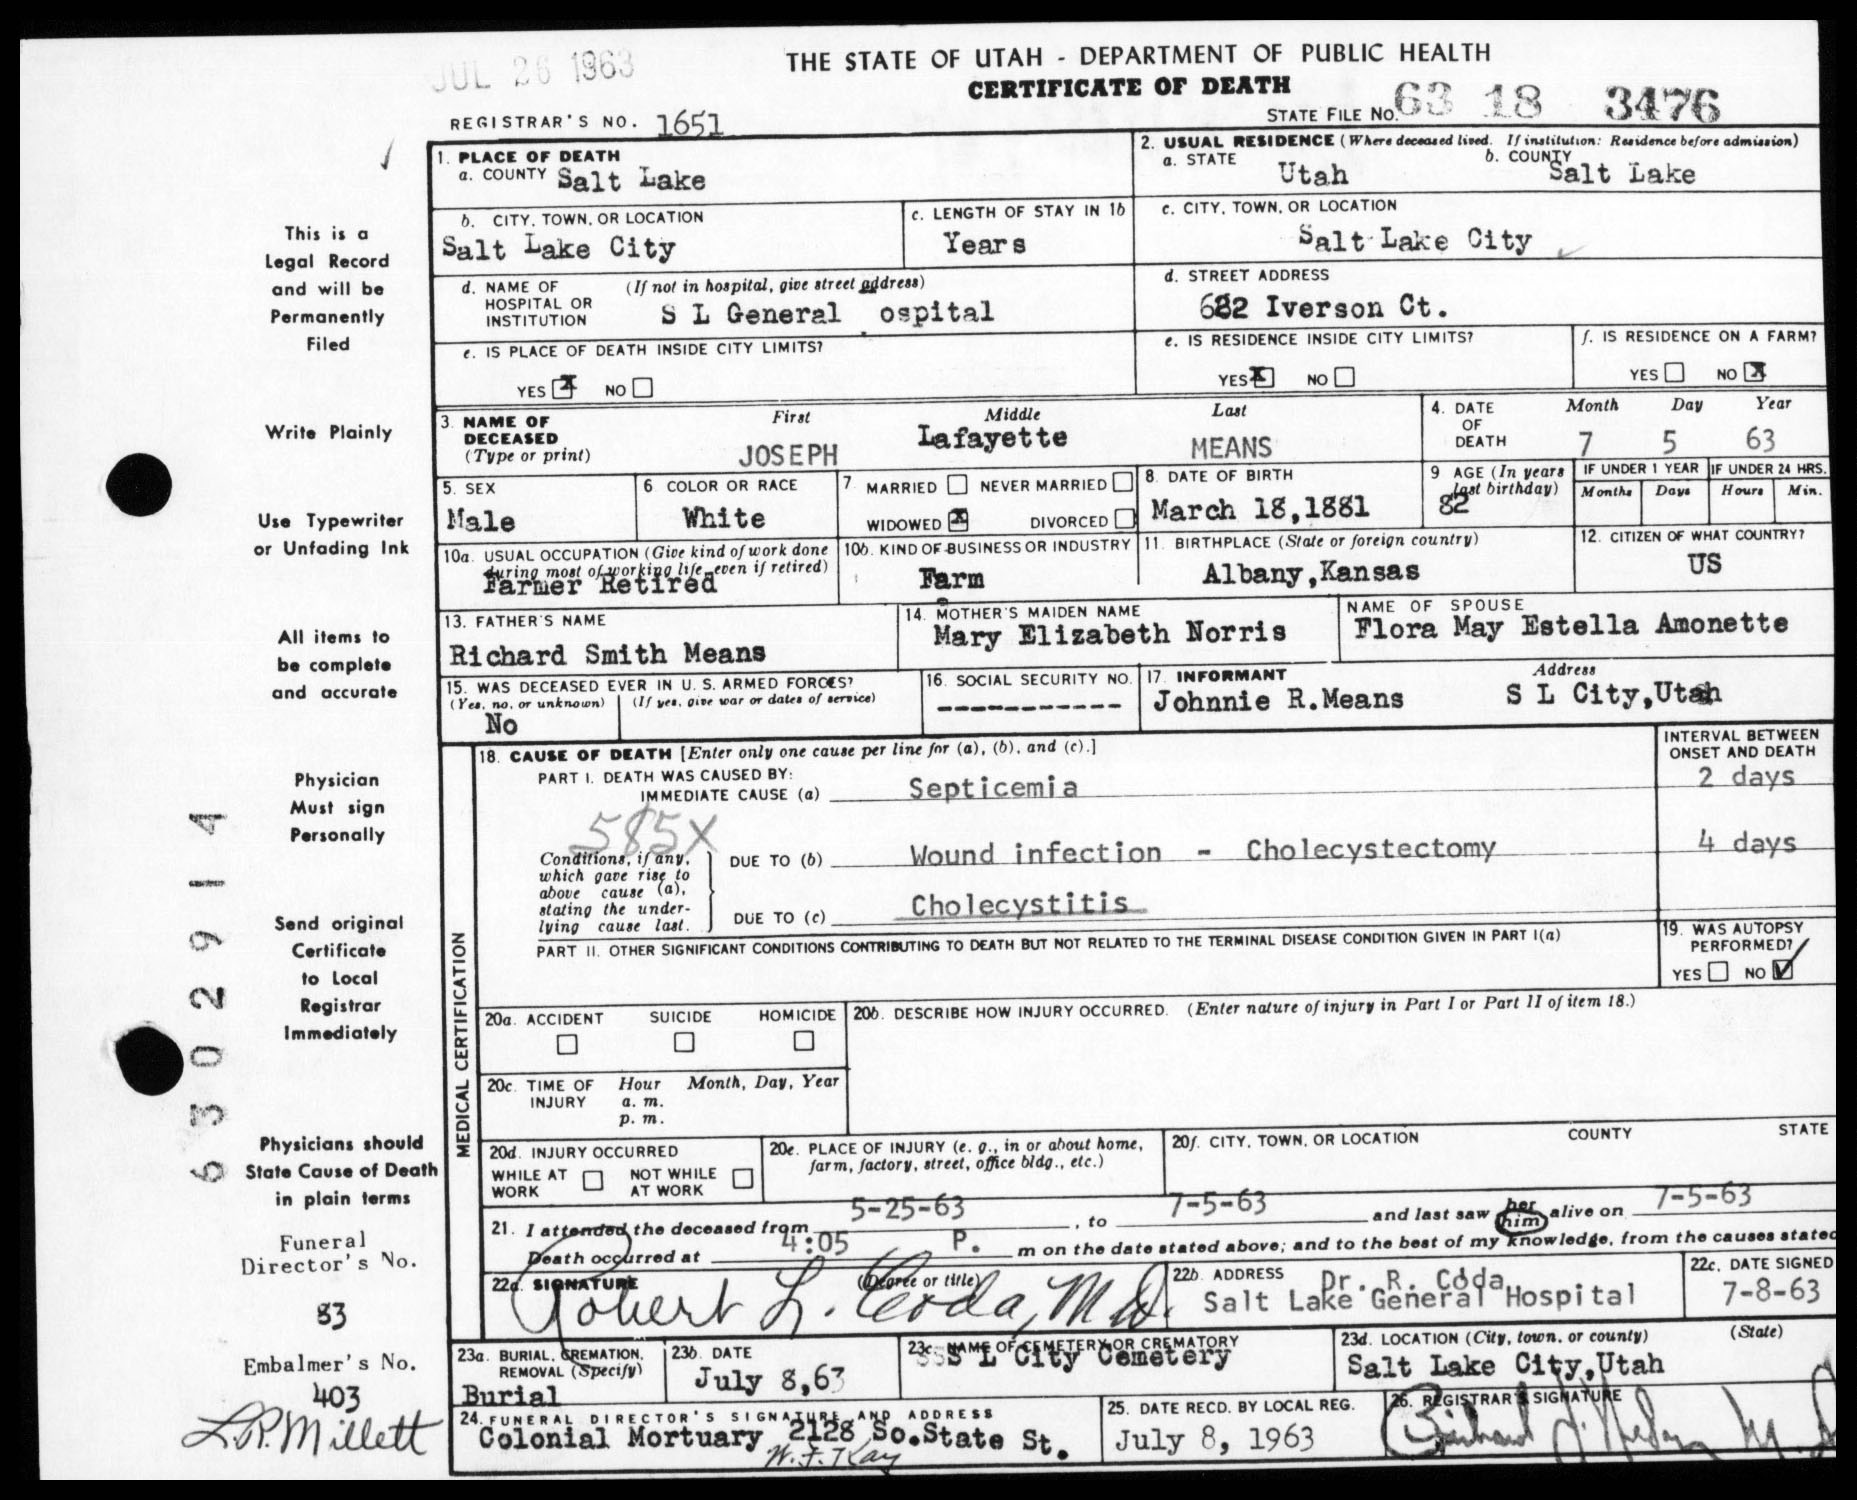 JUL 26 1963
THE STATE OF UTAH - DEPARTMENT OF PUBLIC HEALTH
CERTIFICATE OF DEATH
REGISTRAR'S NO. 1651
STATE FILE NO. 63 18 3476
1. PLACE OF DEATH
a. COUNTY Salt Lake
2. USUAL RESIDENCE (Where deceased lived. If institution: Residence before admission)
a. STATE Utah b. COUNTY Salt Lake
b. CITY, TOWN, OR LOCATION
Salt Lake City
c. LENGTH OF STAY IN 1b
Years
c. CITY, TOWN, OR LOCATION
Salt Lake City
d. NAME OF HOSPITAL OR INSTITUTION (If not in hospital, give street address)
S L General ospital
d. STREET ADDRESS
682 Iverson Ct.
e. IS PLACE OF DEATH INSIDE CITY LIMITS?
YES X NO
e. IS RESIDENCE INSIDE CITY LIMITS?
YES X NO
f. IS RESIDENCE ON A FARM?
YES NO X
3. NAME OF DECEASED (Type or print)
First Middle Last
JOSEPH Lafayette MEANS
4. DATE OF DEATH
Month Day Year
7 5 63
5. SEX
Male
6 COLOR OR RACE
White
7 MARRIED NEVER MARRIED
WIDOWED X DIVORCED
8. DATE OF BIRTH
March 18,1881
9 AGE (In years last birthday)
82
IF UNDER 1 YEAR IF UNDER 24 HRS.
Months Days Hours Min.
10a. USUAL OCCUPATION (Give kind of work done during most of working life, even if retired)
Farmer Retired
10b. KIND OF BUSINESS OR INDUSTRY
Farm
11. BIRTHPLACE (State or foreign country)
Albany,Kansas
12. CITIZEN OF WHAT COUNTRY?
US
13. FATHER'S NAME
Richard Smith Means
14. MOTHER'S MAIDEN NAME
Mary Elizabeth Norris
NAME OF SPOUSE
Flora May Estella Amonette
15. WAS DECEASED EVER IN U. S. ARMED FORCES?
(Yes, no, or unknown) (If yes, give war or dates of service)
No
16. SOCIAL SECURITY NO.
-----------
17. INFORMANT Address
Johnnie R.Means S L City,Utah
MEDICAL CERTIFICATION
18. CAUSE OF DEATH [Enter only one cause per line for (a), (b), and (c).]
INTERVAL BETWEEN ONSET AND DEATH
PART I. DEATH WAS CAUSED BY:
IMMEDIATE CAUSE (a) Septicemia 2 days
585X
Conditions, if any, which gave rise to above cause (a), stating the underlying cause last.
DUE TO (b) Wound infection - Cholecystectomy 4 days
DUE TO (c) Cholecystitis
PART II. OTHER SIGNIFICANT CONDITIONS CONTRIBUTING TO DEATH BUT NOT RELATED TO THE TERMINAL DISEASE CONDITION GIVEN IN PART I(a)
19. WAS AUTOPSY PERFORMED?
YES NO
20a. ACCIDENT SUICIDE HOMICIDE
20b. DESCRIBE HOW INJURY OCCURRED. (Enter nature of injury in Part I or Part II of item 18.)
20c. TIME OF INJURY
Hour Month, Day, Year
a. m.
p. m.
20d. INJURY OCCURRED
WHILE AT WORK NOT WHILE AT WORK
20e. PLACE OF INJURY (e. g., in or about home, farm, factory, street, office bldg., etc.)
20f. CITY, TOWN, OR LOCATION COUNTY STATE
21. I attended the deceased from 5-25-63, to 7-5-63 and last saw her him alive on 7-5-63
Death occurred at 4:05 P. m on the date stated above; and to the best of my knowledge, from the causes stated
22a. SIGNATURE (Degree or title)
Robert L. Coda, M.D.
22b. ADDRESS Dr. R. Coda
Salt Lake General Hospital
22c. DATE SIGNED
7-8-63
23a. BURIAL, CREMATION, REMOVAL (Specify)
Burial
23b. DATE
July 8,63
23c. NAME OF CEMETERY OR CREMATORY
S L City Cemetery
23d. LOCATION (City, town, or county) (State)
Salt Lake City,Utah
24. FUNERAL DIRECTOR'S SIGNATURE AND ADDRESS
Colonial Mortuary 2128 So.State St.
W. F. Kay
25. DATE RECD. BY LOCAL REG.
July 8, 1963
26. REGISTRAR'S SIGNATURE
This is a
Legal Record
and will be
Permanently
Filed
Write Plainly
Use Typewriter
or Unfading Ink
All items to
be complete
and accurate
Physician
Must sign
Personally
Send original
Certificate
to Local
Registrar
Immediately
Physicians should
State Cause of Death
in plain terms
Funeral
Director's No.
83
Embalmer's No.
403
L.R. Millett
6302914